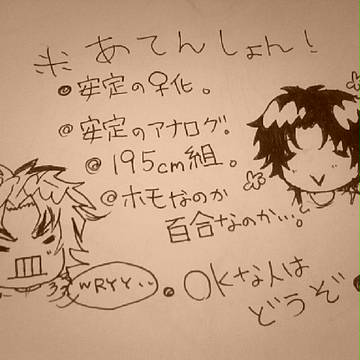 ※あてんしょん!
●安定の♀化。
@安定のアナログ。
@195cm組。
@ホモなのか
百合なのか…。
WRYY..
●OKな人は
どうぞ●